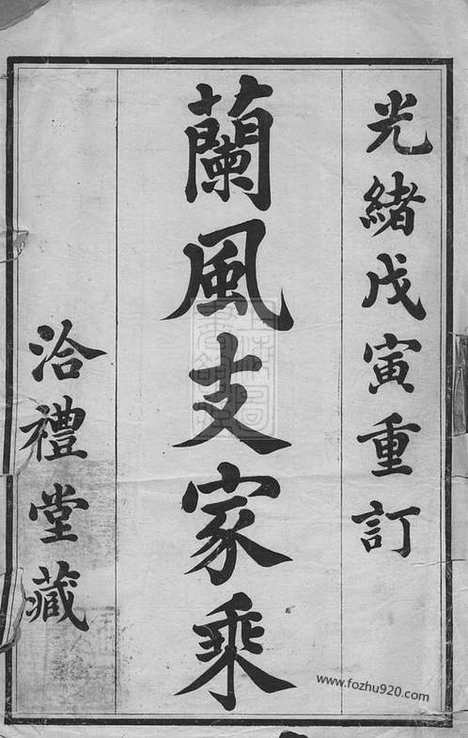 光緒戊寅重訂
蘭風支家乘
洽禮堂藏
www.fozhu920.com